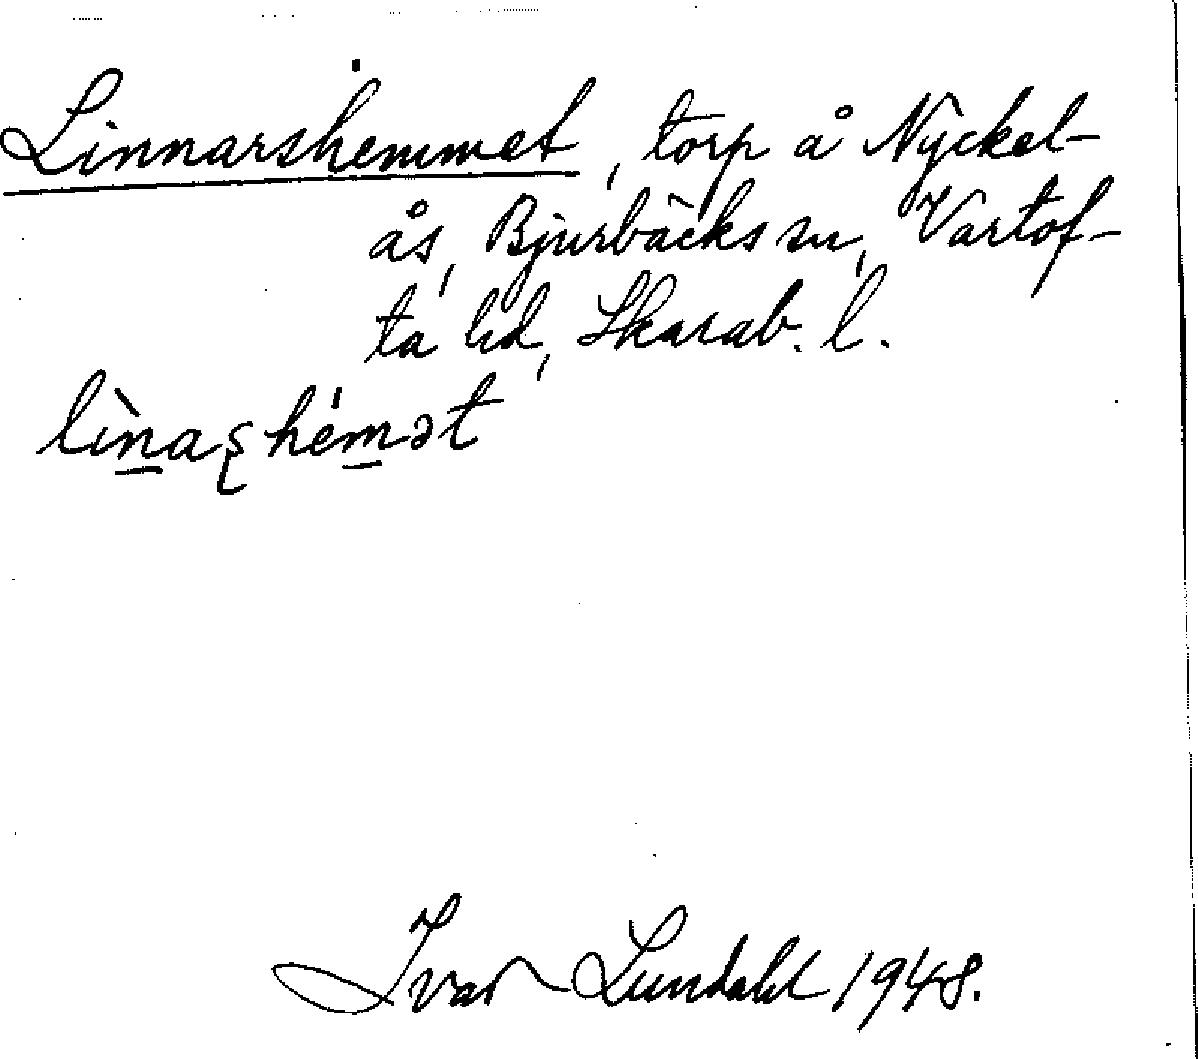 Linnarshemmet, torp å Nyckel-
ås, Bjurbäcks sn, Vartof-
ta hd, Skarab. l.
lìn̲aʂhém̲ət
Ivar Lundahl 1948.